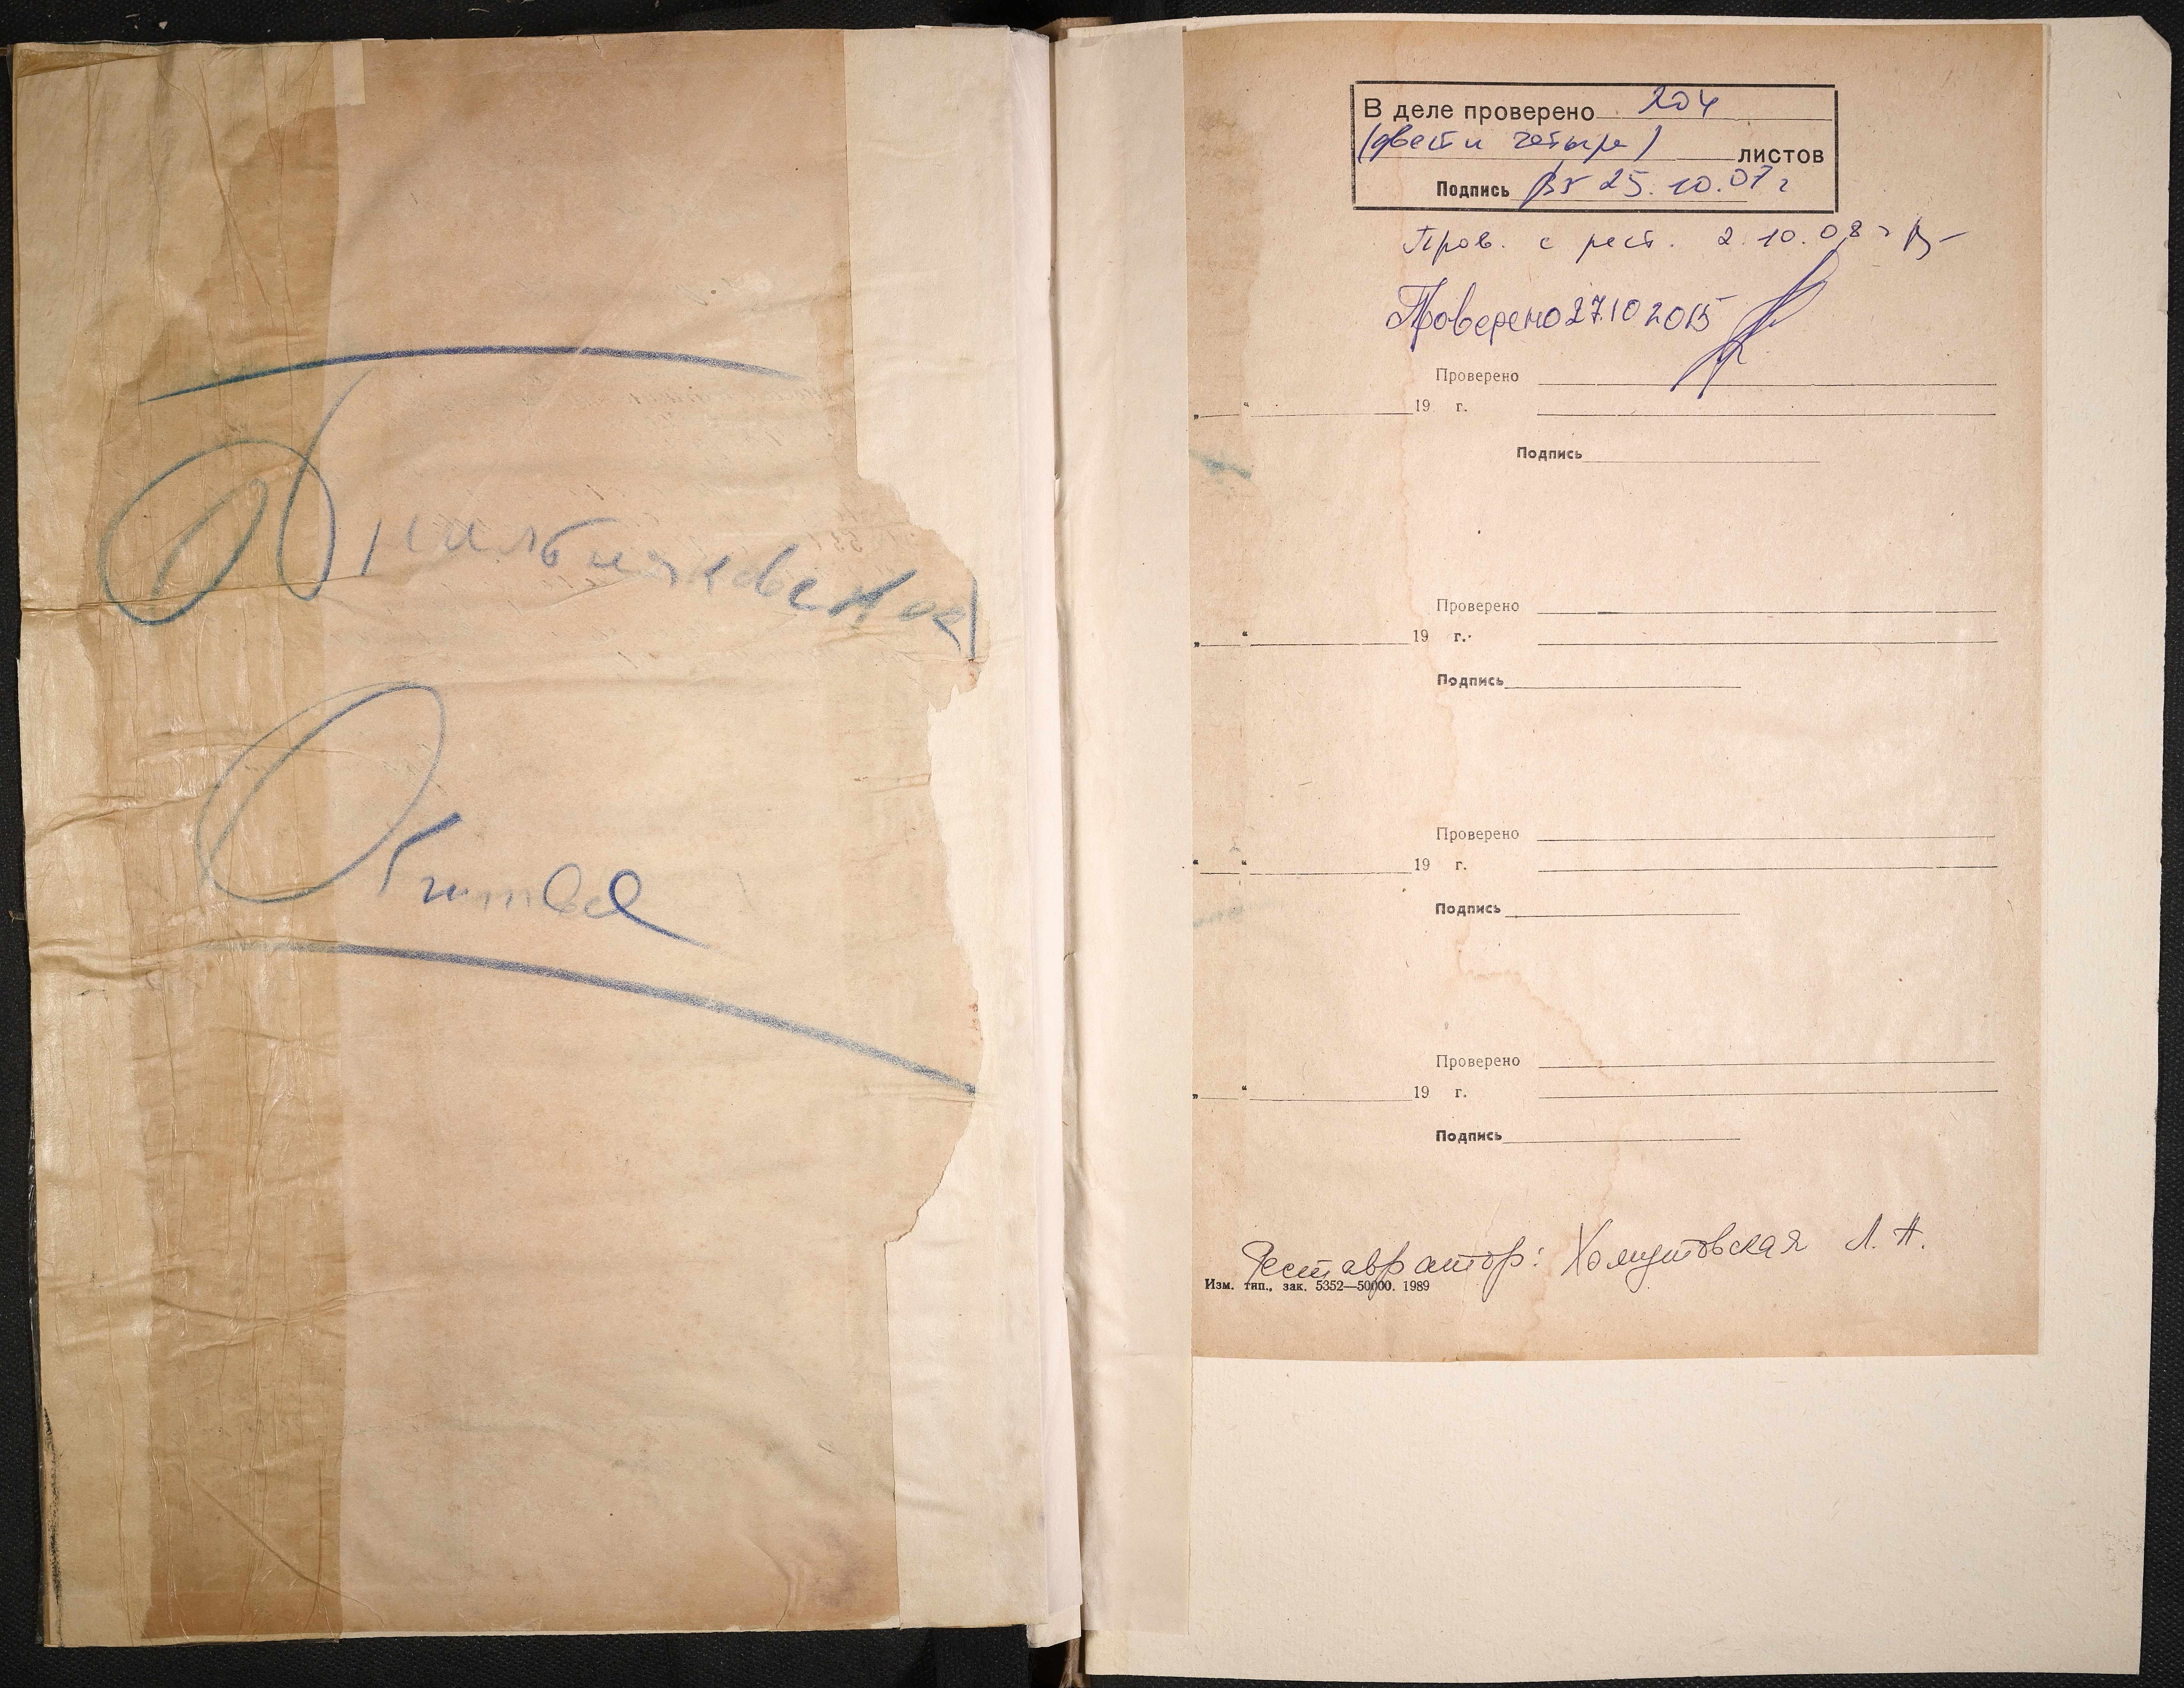 В деле проверено 204
(двести четыре) листов
Подпись 25.10.07 г
Пров. с рест. 2.10.08 г
Проверено 27.10 2015
Проверено
„ “ 19 г.
Подпись
Проверено
„ “ 19 г.
Подпись
Проверено
„ “ 19 г.
Подпись
Проверено
„ “ 19 г.
Подпись
Реставратор: Хомутовская Л. А.
Изм. тип., зак. 5352—50000. 1989